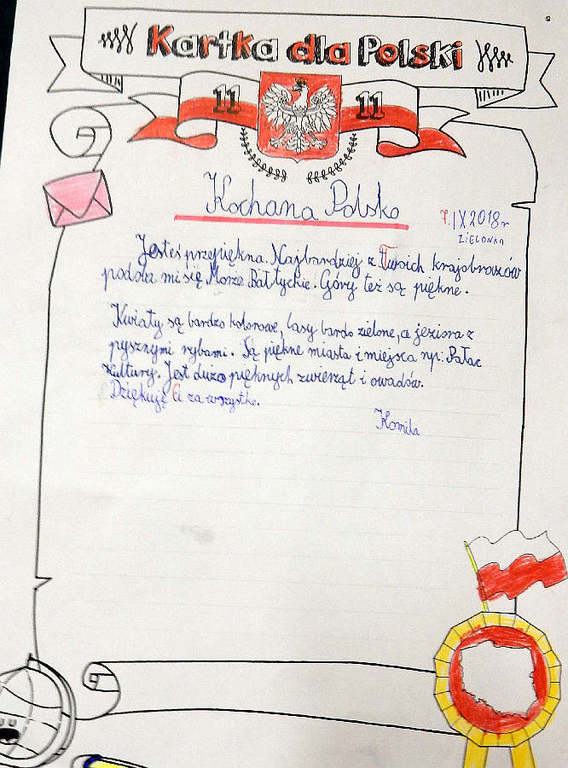 Kartka dla Polski
11 11
Kochana Polsko
7.IX2018r
ZIELONKA
Jesteś przepiękna. Najbardziej z Twoich krajobrazów
podoba mi się Morze Bałtyckie. Góry też są piękne.
Kwiaty są bardzo kolorowe, lasy bardo zielone, a jeziora z
pysznymi rybami. Są piękne miasta i miejsca np.: Pałac
Kultury. Jest dużo pięknych zwierząt i owadów.
Dziękuję Ci za wszystko.
Kamila